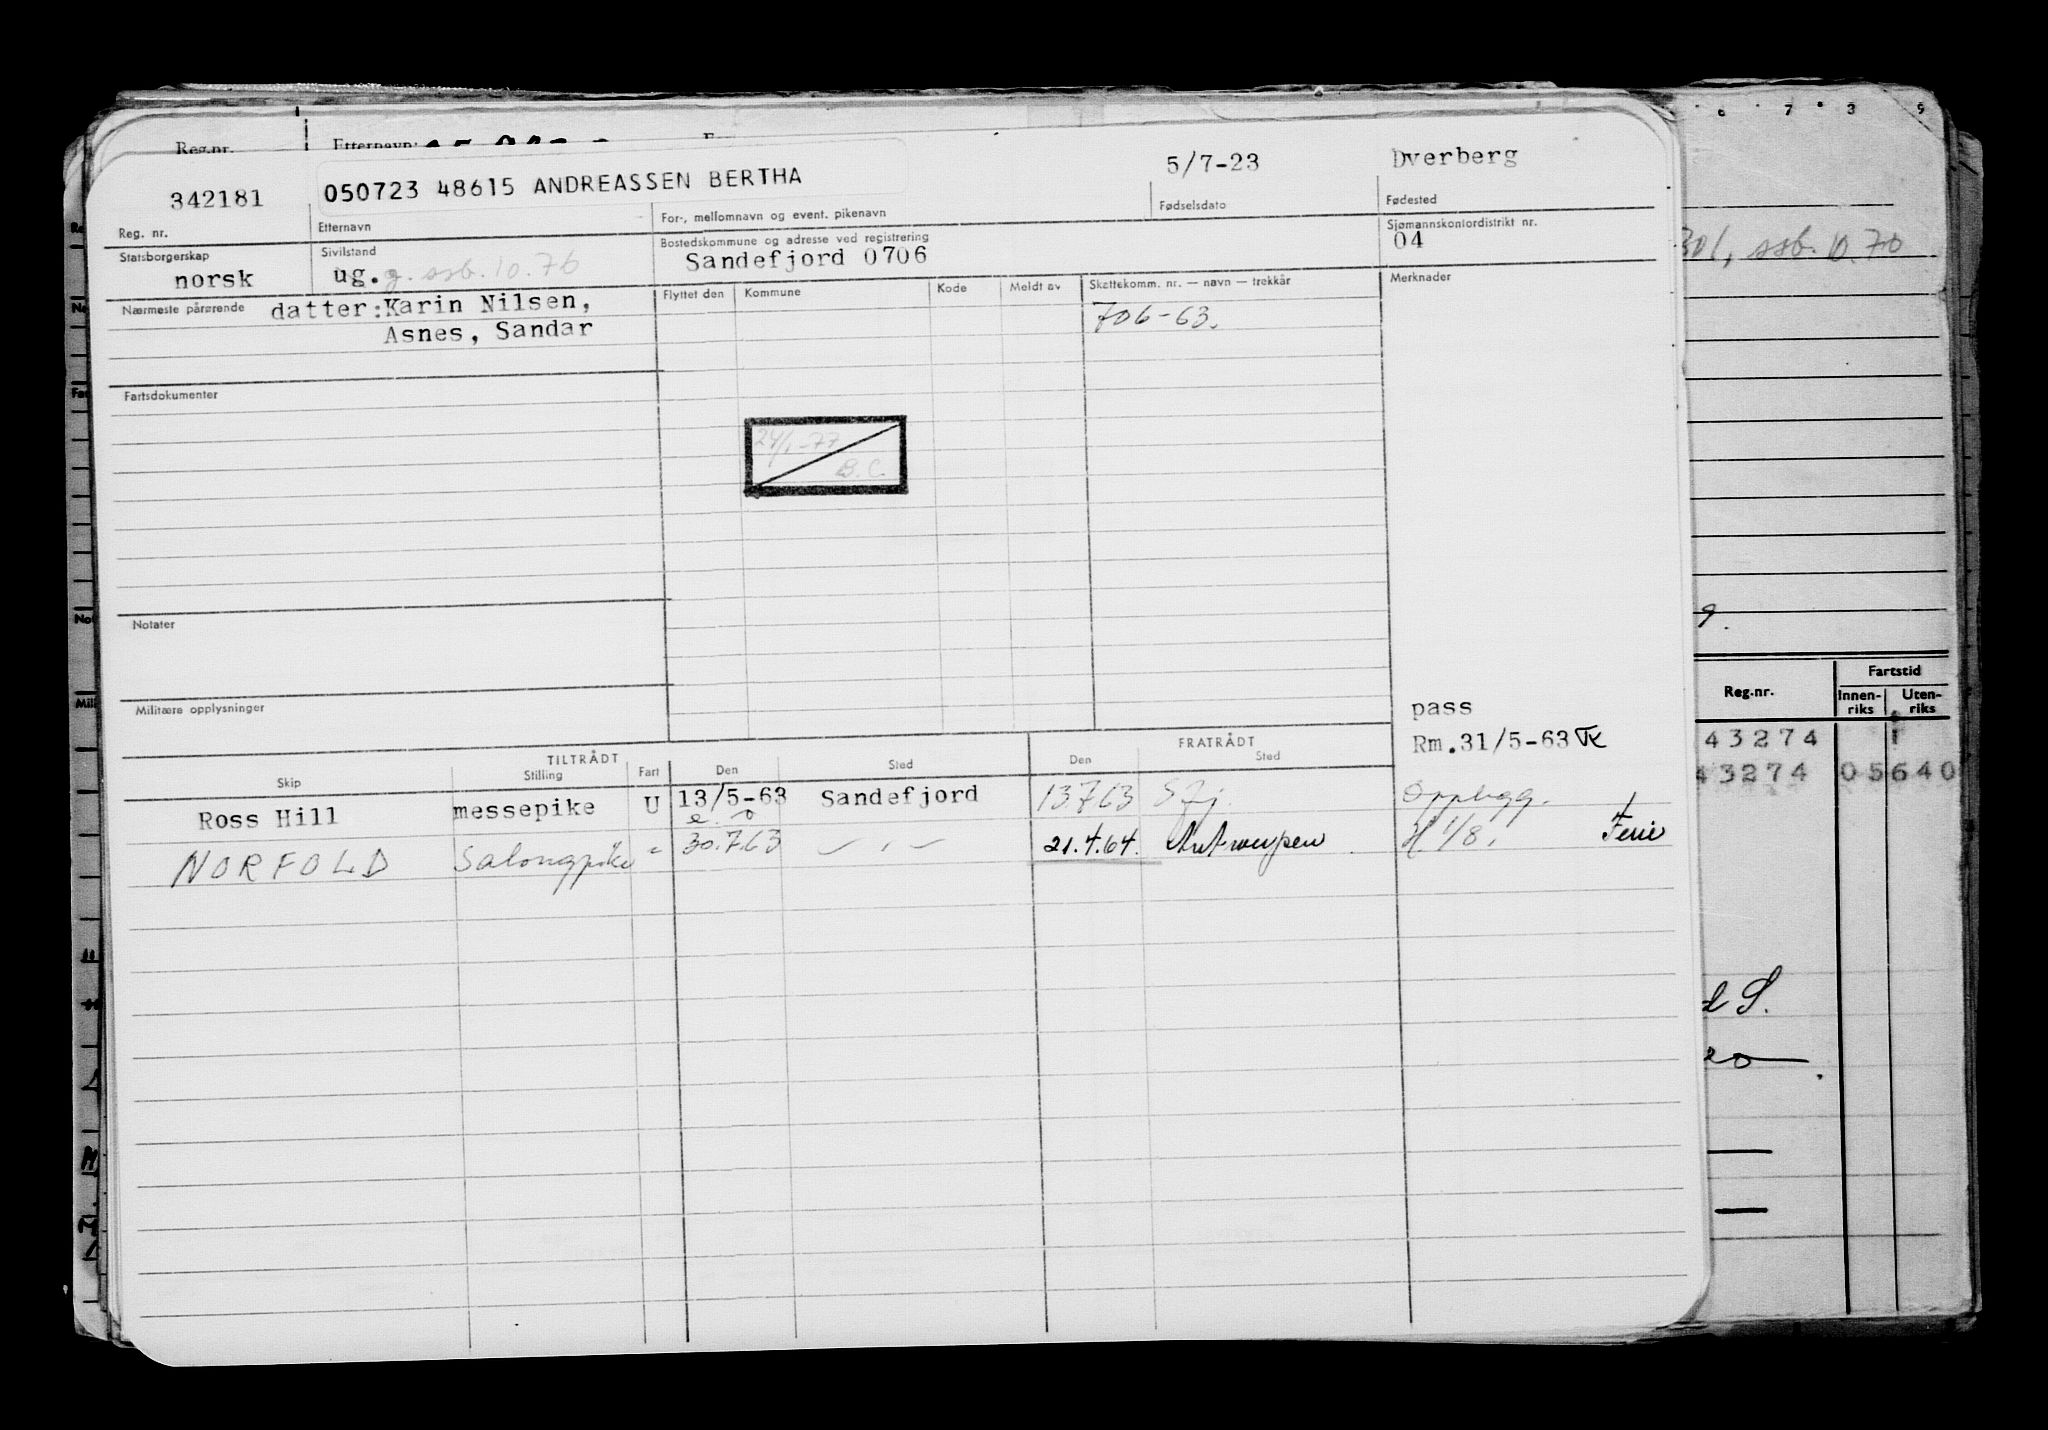 Reg.nr. Etternavn:
342181 050723 48615 ANDREASSEN BERTHA 5/7-23 Dverberg
Reg. nr. Etternavn For-, mellomnavn og event. pikenavn Fødselsdato Fødested
Statsborgerskap Sivilstand Bostedskommune og adresse ved registrering Sjømannskontordistrikt nr.
norsk ug. g. ssb. 10.76 Sandefjord 0706 04
Nærmeste pårørende datter: Karin Nilsen, Flyttet den Kommune Kode Meldt av Skattekomm. nr. — navn — trekkår Merknader
Asnes, Sandar 706-63.
Fartsdokumenter
24/1-77
B.C.
Notater
Militære opplysninger
pass
Rm.31/5-63
TILTRÅDT FRATRÅDT
Skip Stilling Fart Den Sted Den Sted
Ross Hill messepike U 13/5-63 Sandefjord 13.7.63 Sfj. Opplegg.
NORFOLD Salongpike " 30.7.63 — " — 21.4.64. Antwerpen. H 1/8. Ferie
6 7 8 9
301, ssb. 10.70
9.
Reg.nr. Fartstid
Innen-riks Uten-riks
43274 1
43274 05640
d S.